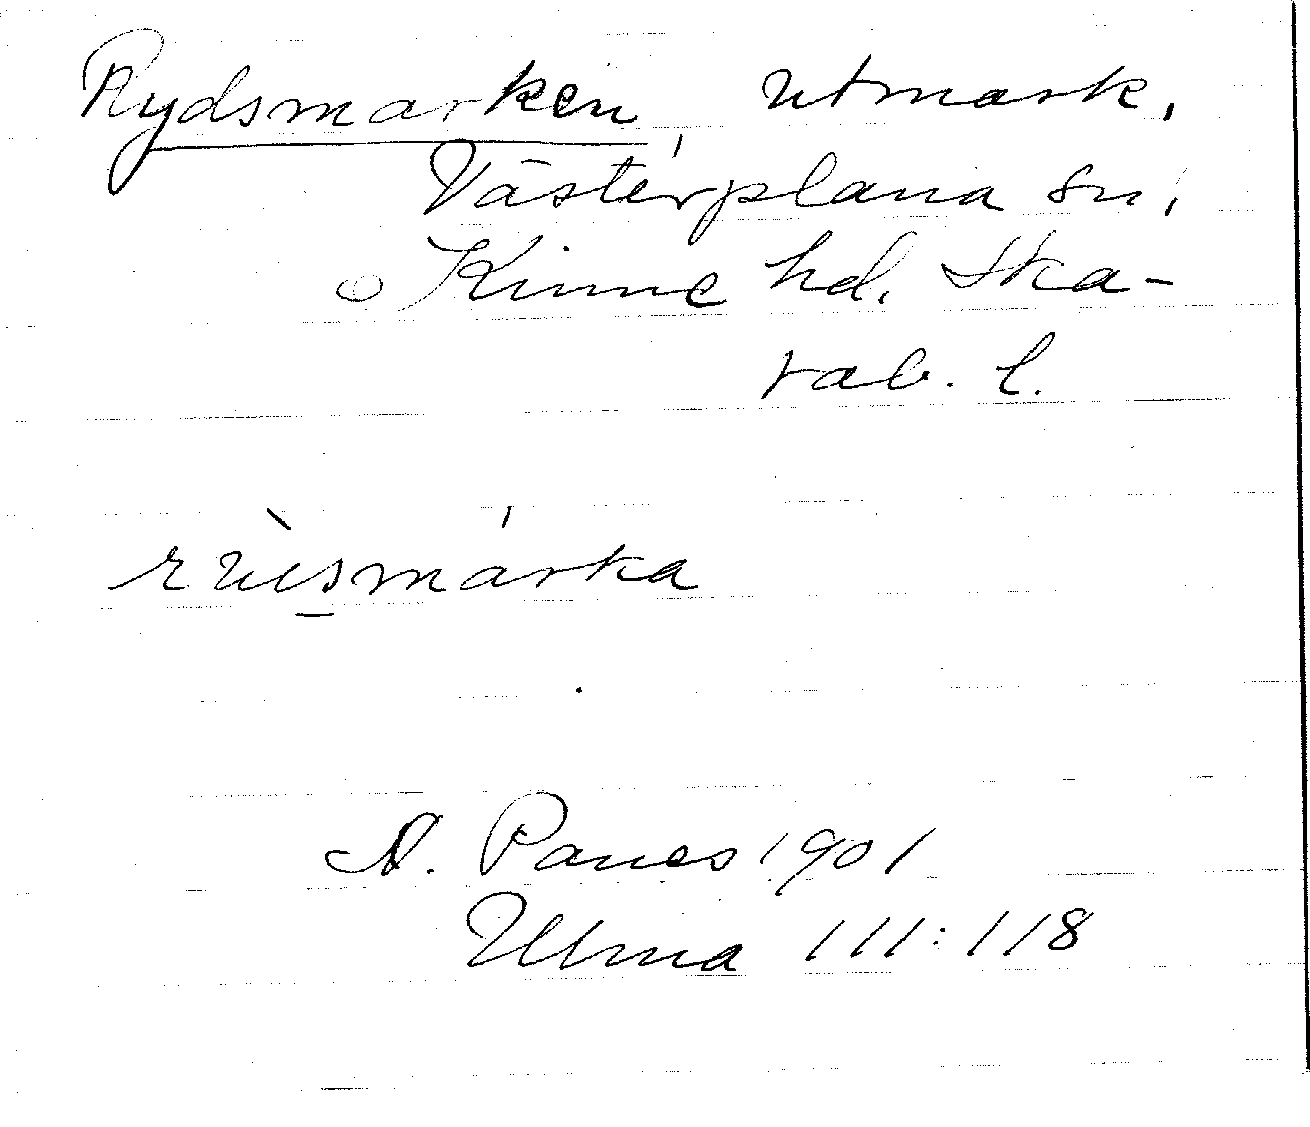 Rydsmarken, utmark,
Västerplana sn,
Kinne hd. Ska-
rab. l.
rùs̱márka
A. Panes 1901
Ulma 111:118